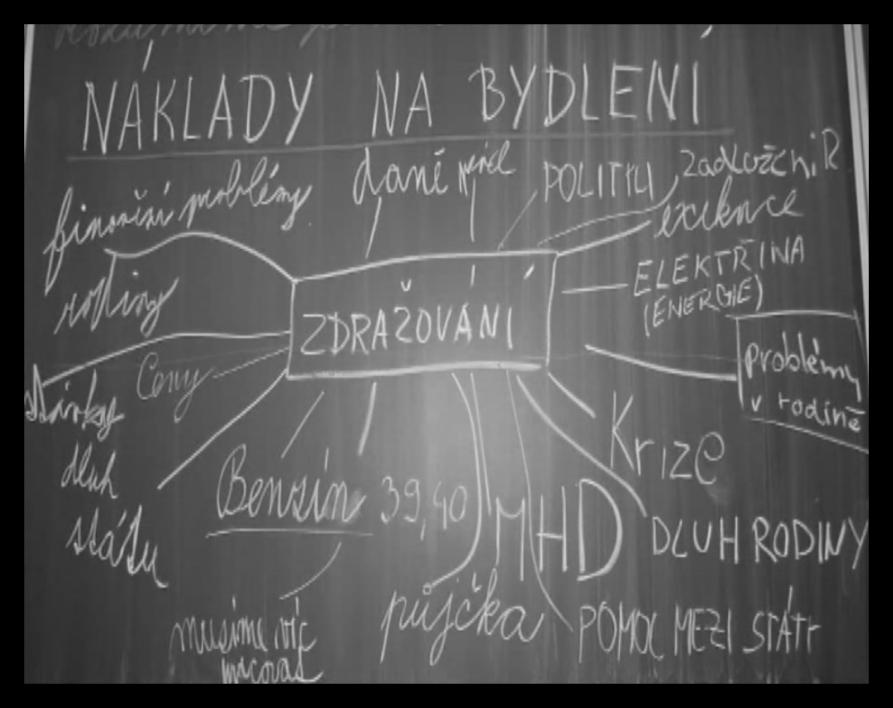 NÁKLADY NA BYDLENÍ
finanční problémy
rodiny
daně
POLITICI
zadlužení R
exekuce
ELEKTŘINA
(ENERGIE)
ZDRAŽOVÁNÍ
Problémy
v rodině
Ceny
stávky
dluh
státu
Benzín 39,40
MHD
Krize
DLUH RODINY
půjčka
POMOC MEZI STÁTY
musíme víc